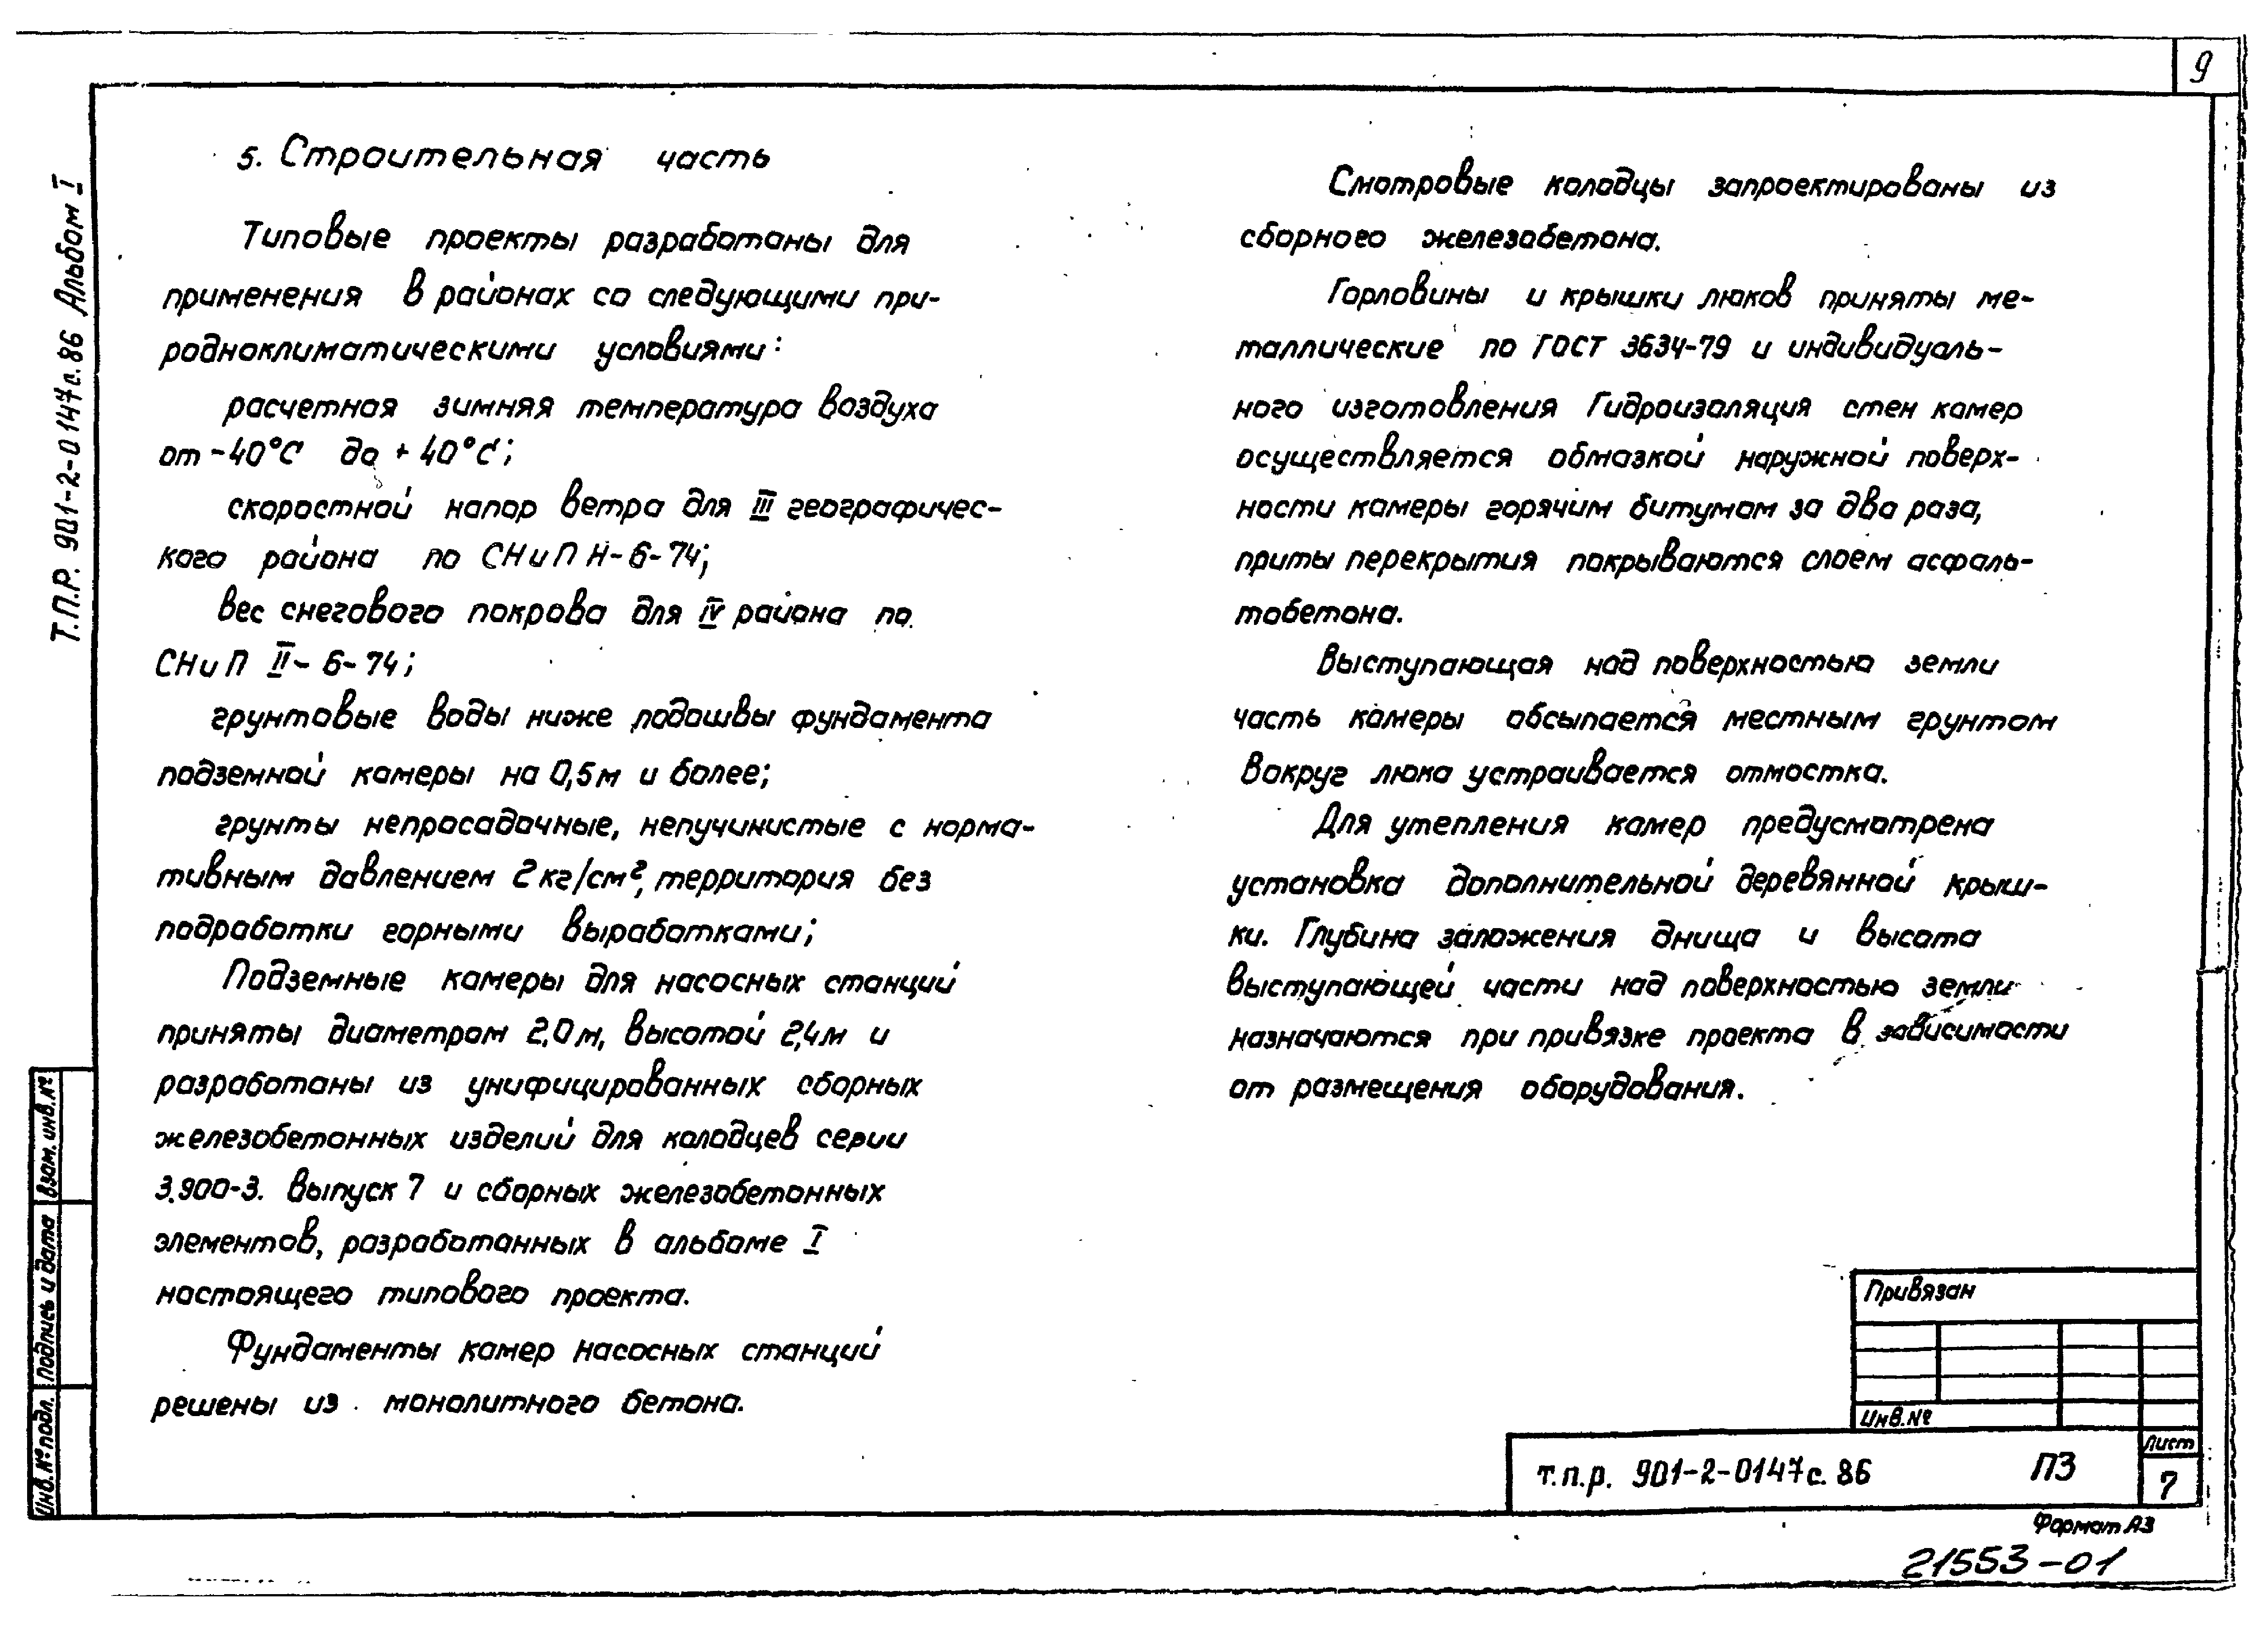 9
5. Строительная часть
Типовые проекты разработаны для
применения в районах со следующими при-
родноклиматическими условиями:
расчетная зимняя температура воздуха
от -40°С до +40°С;
скоростной напор ветра для III географичес-
кого района по СНиП II-6-74;
вес снегового покрова для IV района по
СНиП II-6-74;
грунтовые воды ниже подошвы фундамента
подземной камеры на 0,5м и более;
грунты непросадочные, непучинистые с норма-
тивным давлением 2кг/см², территория без
подработки горными выработками;
Подземные камеры для насосных станций
приняты диаметром 2.0м, высотой 2,4м и
разработаны из унифицированных сборных
железобетонных изделий для колодцев серии
3.900-3. Выпуск 7 и сборных железобетонных
элементов, разработанных в альбоме I
настоящего типового проекта.
Фундаменты камер насосных станций
решены из монолитного бетона.
Смотровые колодцы запроектированы из
сборного железобетона.
Горловины и крышки люков приняты ме-
таллические по ГОСТ 3634-79 и индивидуаль-
ного изготовления Гидроизоляция стен камер
осуществляется обмазкой наружной поверх-
ности камеры горячим битумом за два раза,
приты перекрытия покрываются слоем асфаль-
тобетона.
Выступающая над поверхностью земли
часть камеры обсыпается местным грунтом
Вокруг люка устраивается отмостка.
Для утепления камер предусмотрена
установка дополнительной деревянной крыш-
ки. Глубина заложения днища и высота
выступающей части над поверхностью земли
назначаются при привязке проекта в зависимости
от размещения оборудования.
Т.П.Р. 901-2-0147с.86 Альбом I
Взам. инв.№
Подпись и дата
Инв.№ подл.
Привязан
Инв.№
т.п.р. 901-2-0147с.86 ПЗ
Лист
7
Формат А3
21553-01